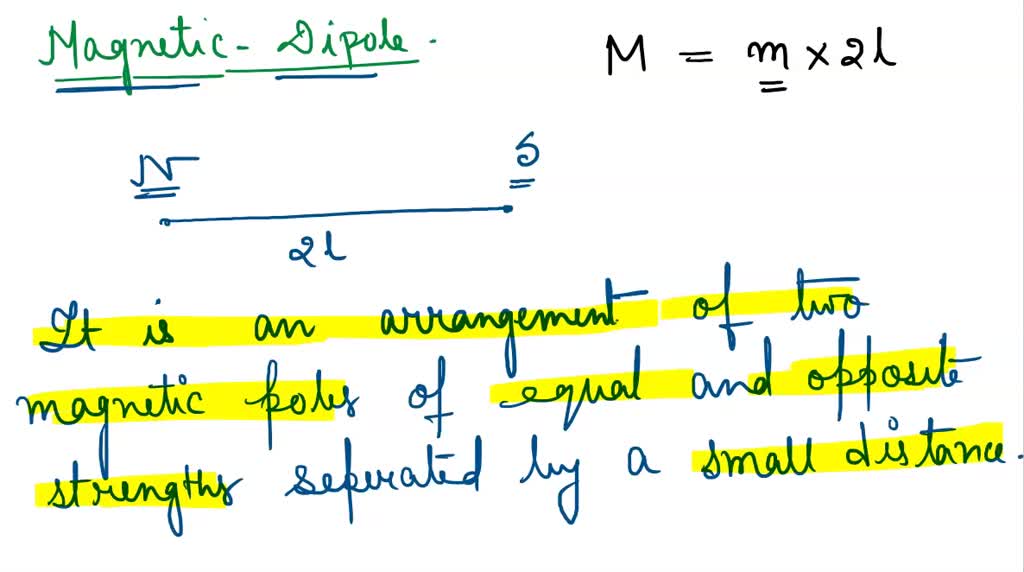 Magnetic - Dipole.
M = m × 2l
N S
2l
It is an arrangement of two
magnetic poles of equal and opposite
strengths seperated by a small distance.